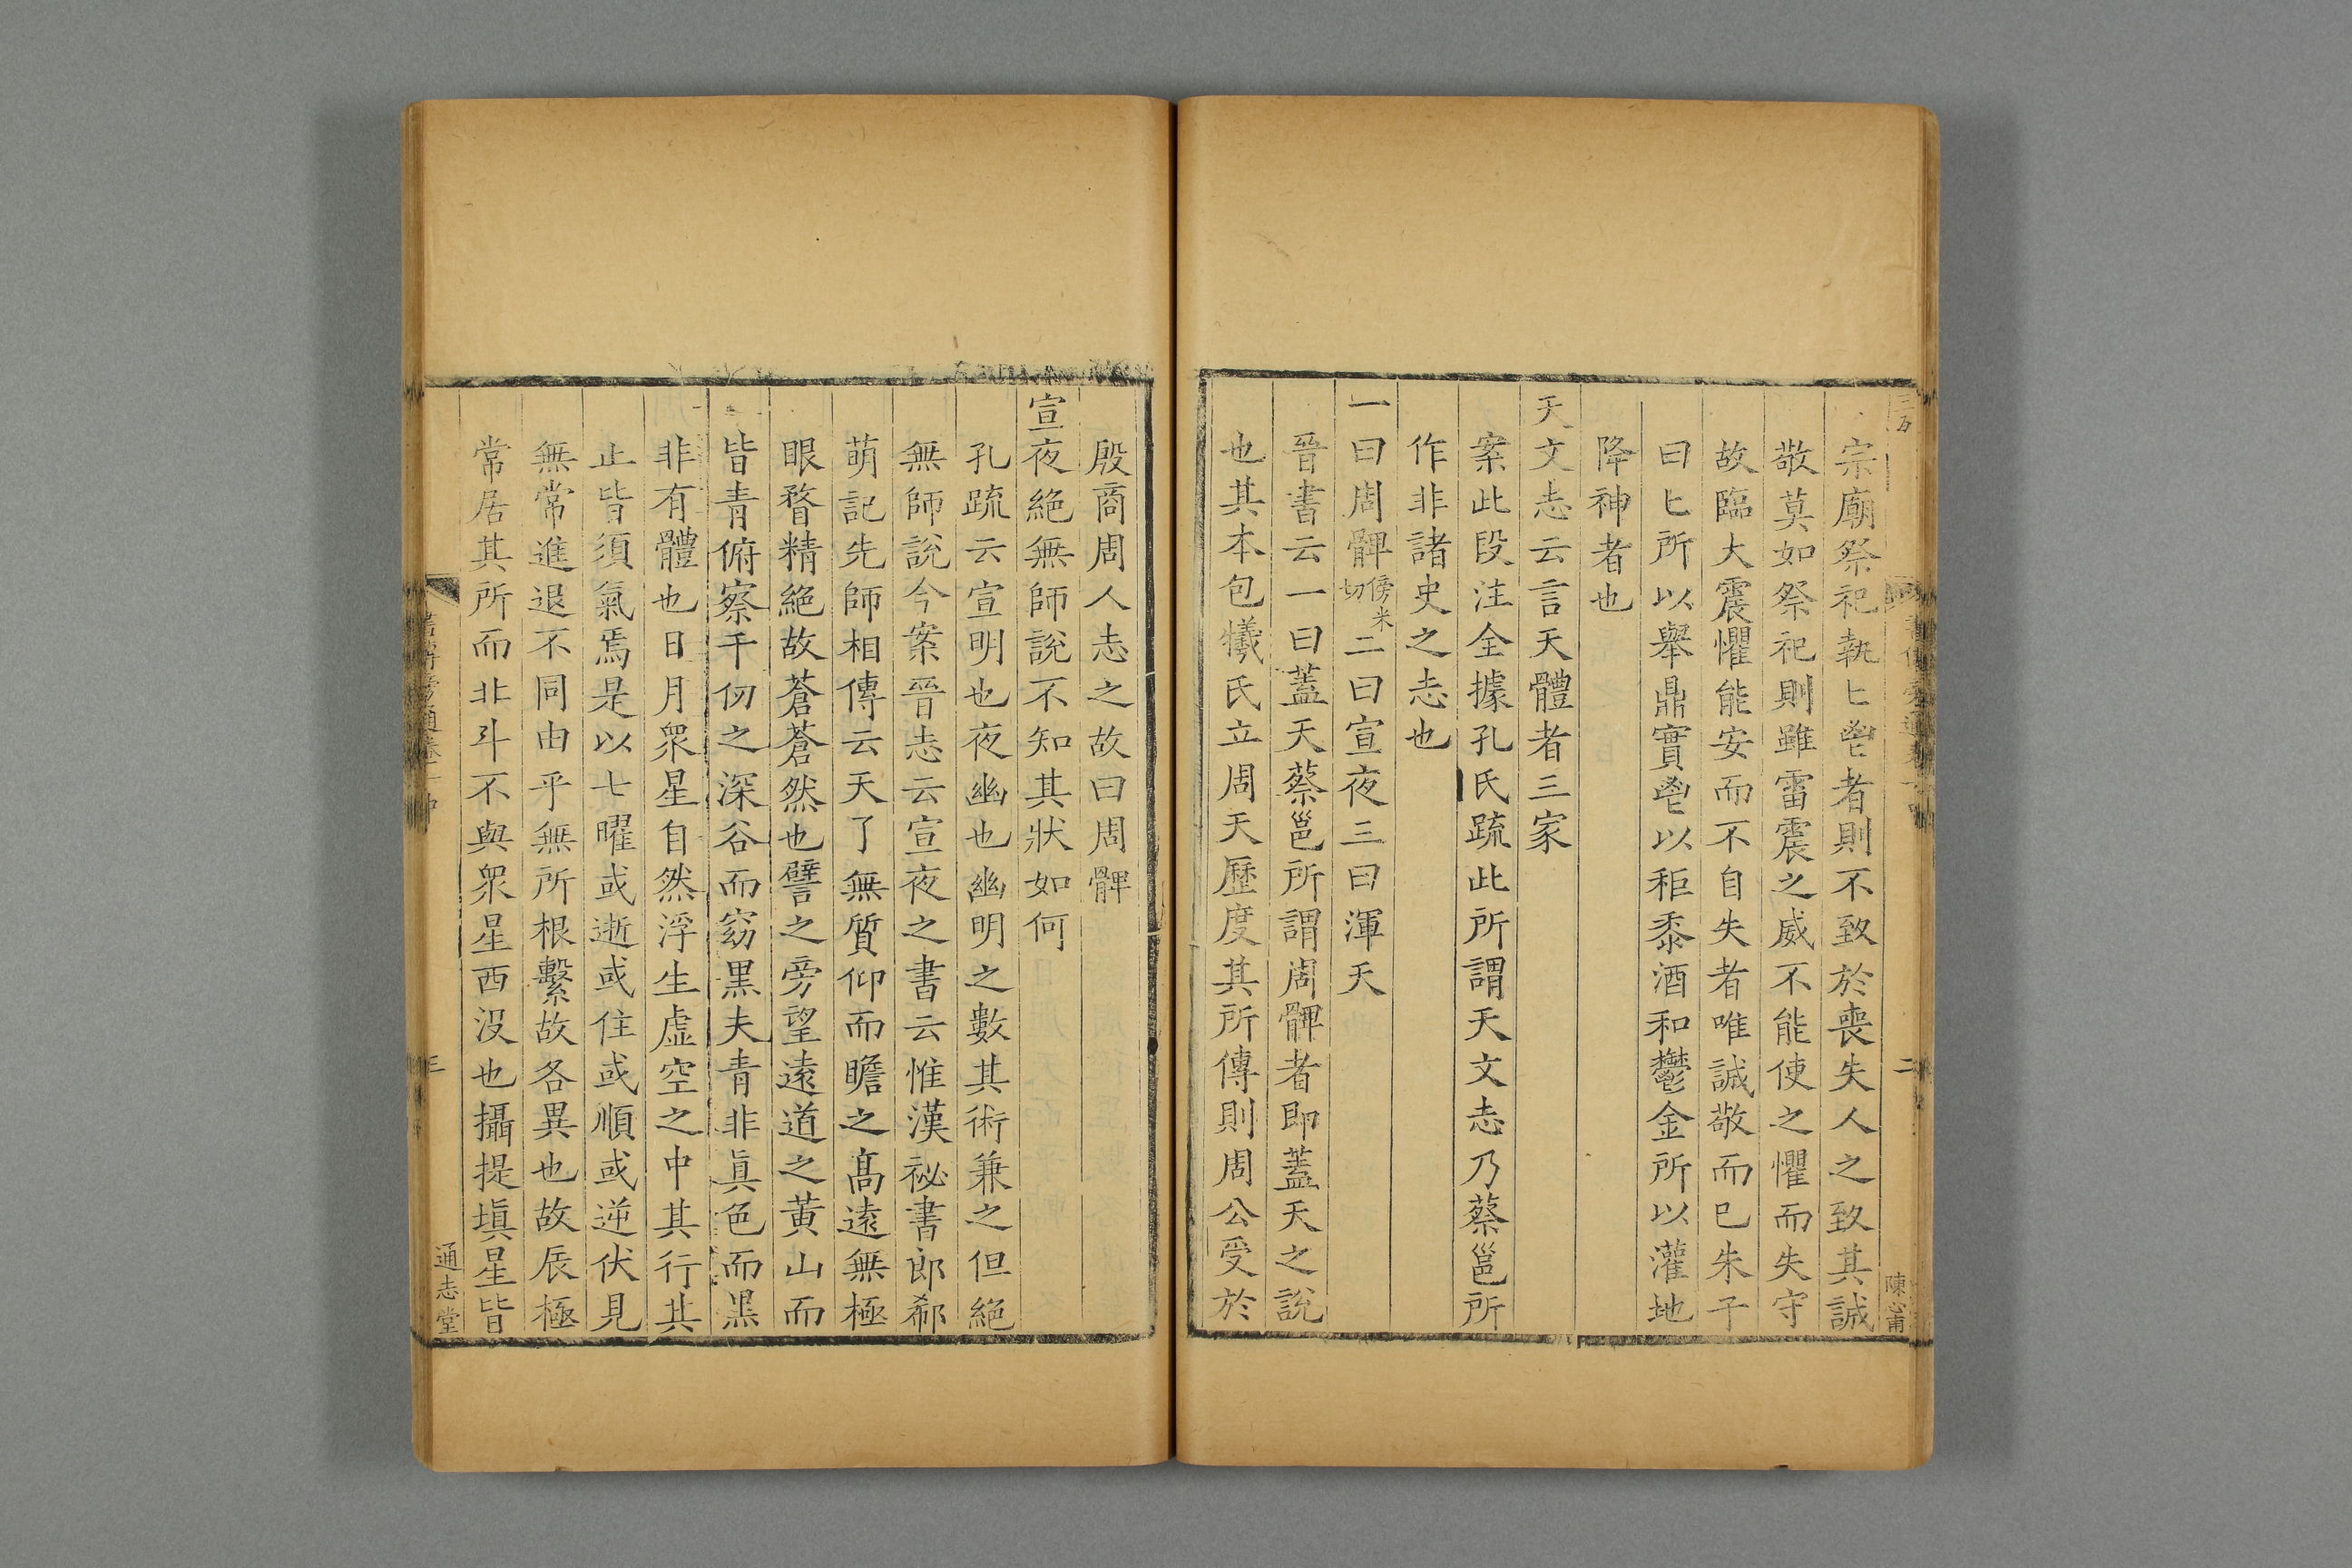 宗廟祭祀執匕鬯者則不致於喪失人之致其誠
敬莫如祭祀則雖雷震之威不能使之懼而失守
故臨大震懼能安而不自失者唯誠敬而已朱子
曰匕所以舉鼎實鬯以秬黍酒和鬱金所以灌地
降神者也
天文志云言天體者三家
案此段注全據孔氏疏此所謂天文志乃蔡邕所
作非諸史之志也
一曰周髀傍米切二曰宣夜三曰渾天
晉書云一曰蓋天蔡邕所謂周髀者即蓋天之說
也其本包犧氏立周天歷度其所傳則周公受於
二
陳心甫
殷商周人志之故曰周髀
宣夜絕無師說不知其狀如何
孔疏云宣明也夜幽也幽明之數其術兼之但絕
無師說今案晉志云宣夜之書云惟漢祕書郎郗
萌記先師相傳云天了無質仰而瞻之髙遠無極
眼瞀精絕故蒼蒼然也譬之旁望遠道之黃山而
皆青俯察千仞之深谷而窈黑夫青非眞色而黑
非有體也日月衆星自然浮生虛空之中其行其
止皆須氣焉是以七曜或逝或住或順或逆伏見
無常進退不同由乎無所根繫故各異也故辰極
常居其所而北斗不與衆星西沒也攝提塡星皆
三
通志堂